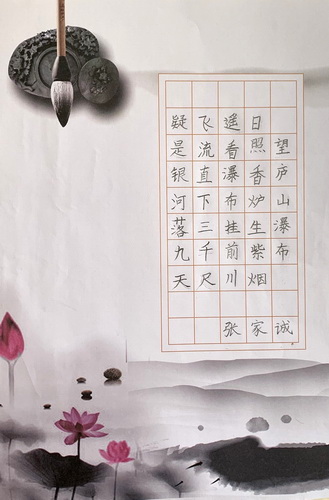 望庐山瀑布
日照香炉生紫烟
遥看瀑布挂前川
飞流直下三千尺
疑是银河落九天
张家诚